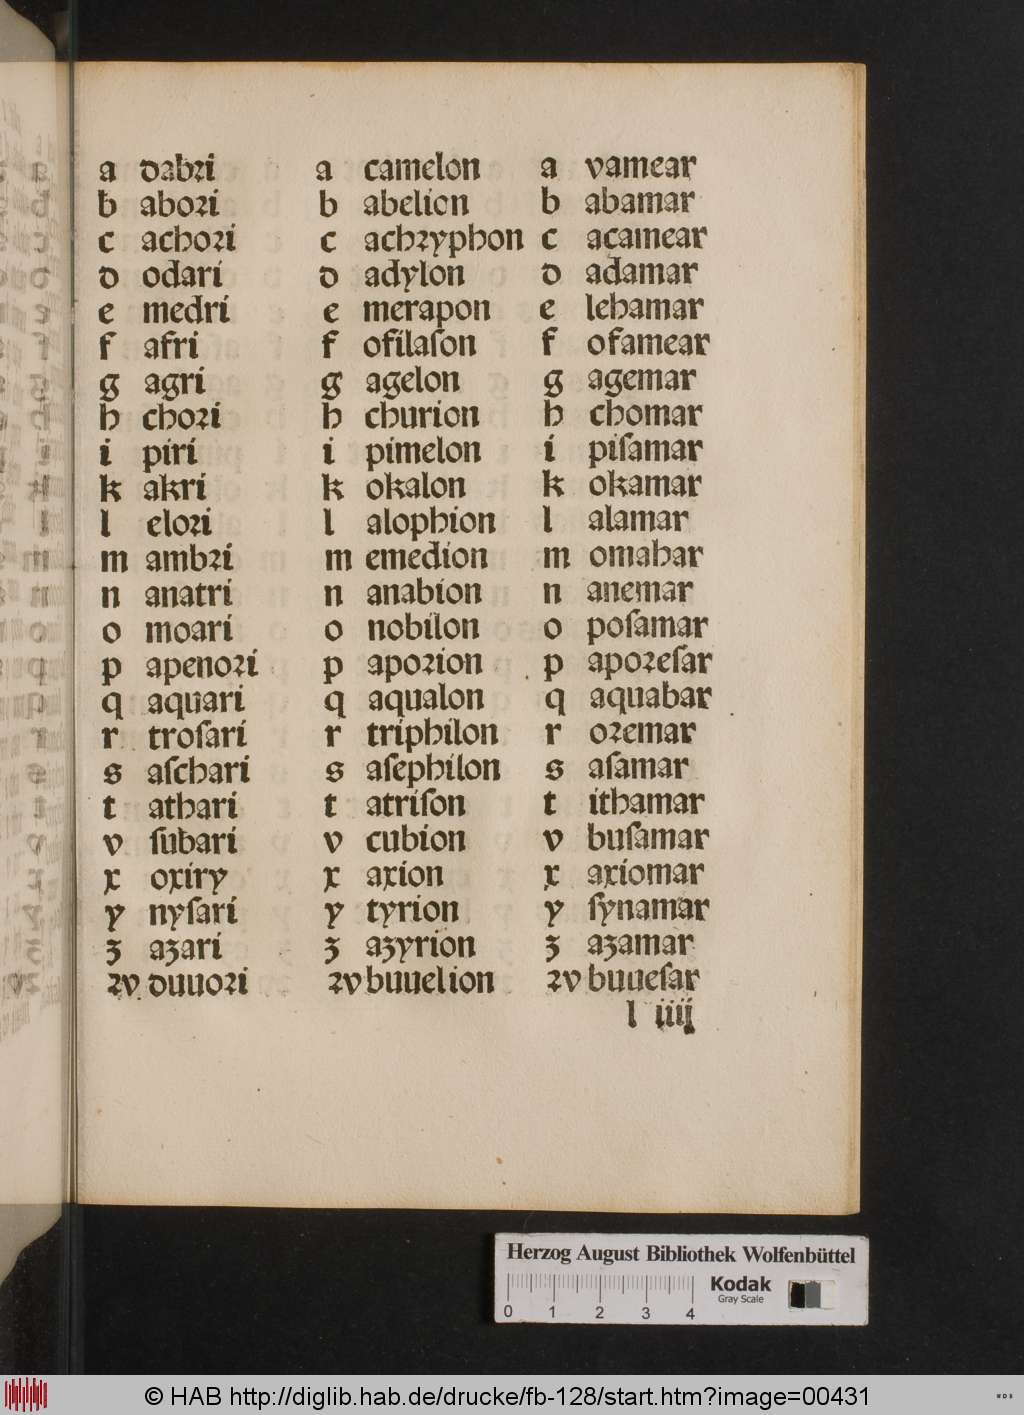 a dabri a camelon a vamear
b abori b abelion b abamar
c achori c achryphon c acamear
d odari d adylon d adamar
e medri e merapon e lehamar
f afri f ofilaſon f ofamear
g agri g agelon g agemar
h chori h churion h chomar
i piri i pimelon i piſamar
k akri k okalon k okamar
l elori l alophion l alamar
m ambri m emedion m omahar
n anatri n anabion n anemar
o moari o nobilon o poſamar
p apenori p aporion p aporeſar
q aquari q aqualon q aquabar
r troſari r triphilon r oremar
s aſchari s aſephilon s aſamar
t athari t atriſon t ithamar
v ſubari v cubion v buſamar
x oxiry x axion x axiomar
y nyſari y tyrion y ſynamar
z azari z azyrion z azamar
rv duuori rv buuelion rv buueſar
l iiij
Herzog August Bibliothek Wolfenbüttel
Kodak
Gray Scale
0 1 2 3 4
© HAB http://diglib.hab.de/drucke/fb-128/start.htm?image=00431